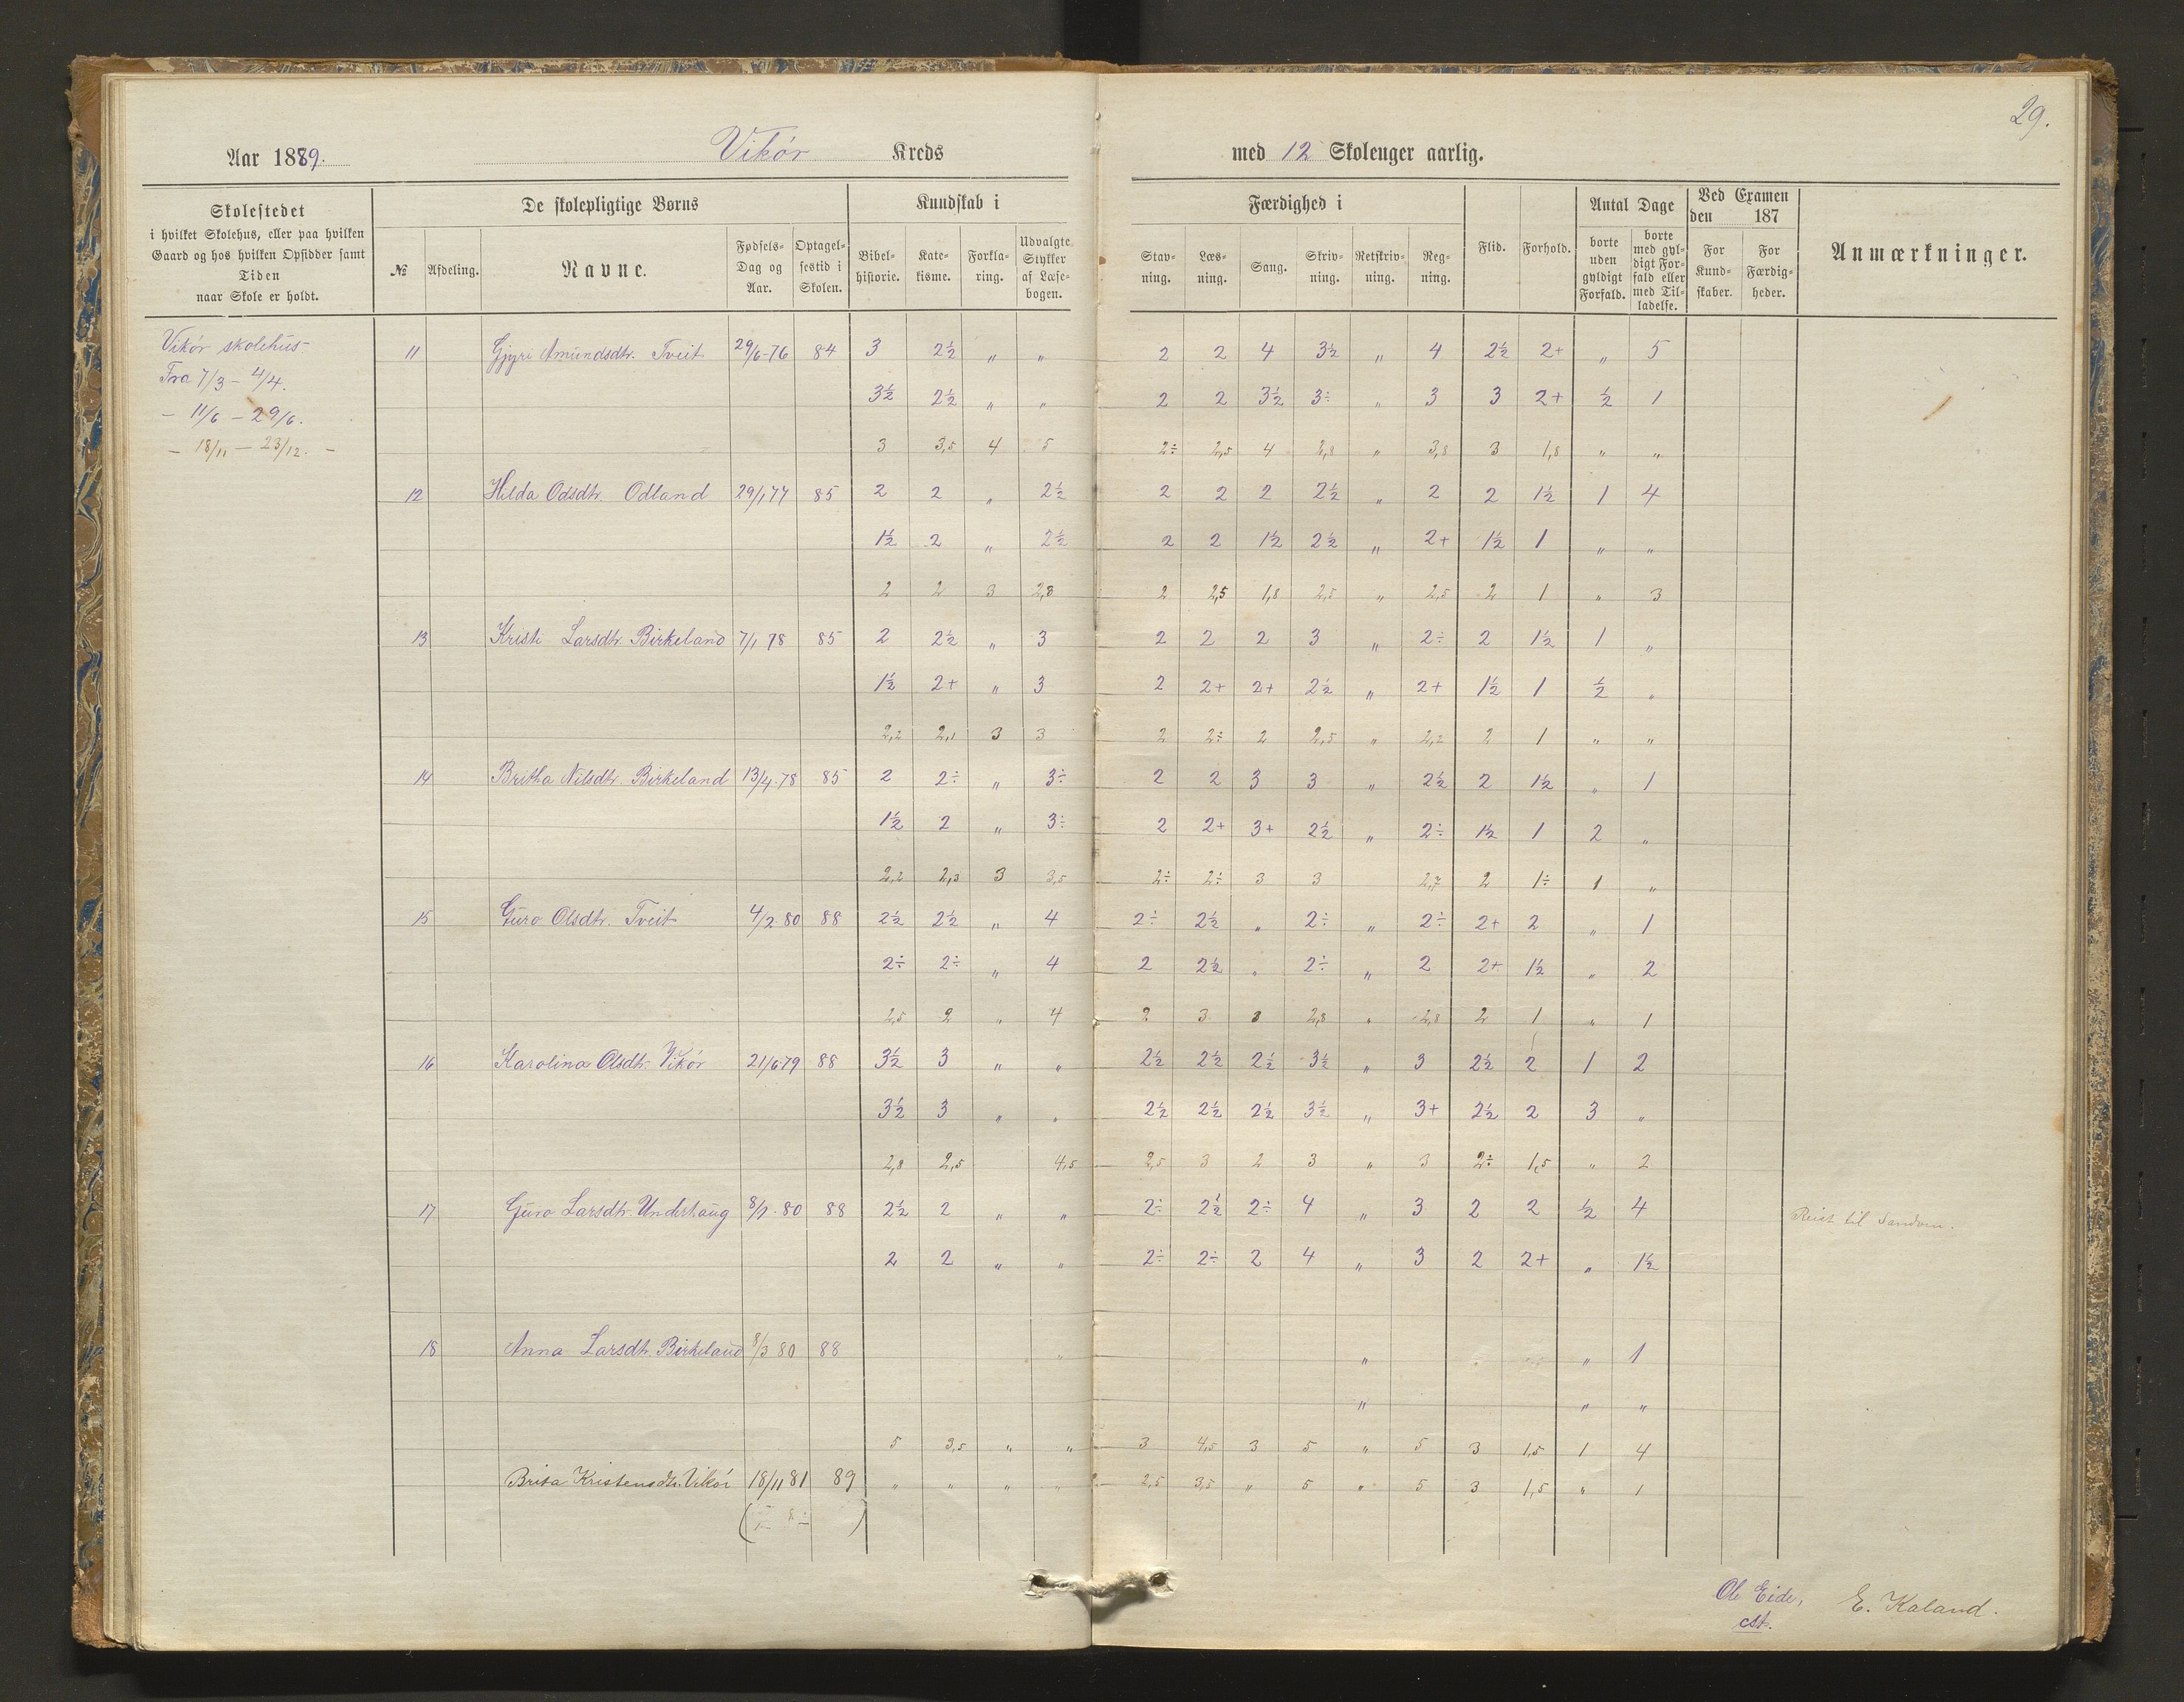 29.
Aar 1889. Vikør Kreds med 12 Skoleuger aarlig.
Skolestedet
i hvilket Skolehus, eller paa hvilken
Gaard og hos hvilken Opsidder samt
Tiden
naar Skole er holdt.
De skolepligtige Børns
№ Afdeling. Navne. Fødsels- Dag og Aar. Optagel- sestid i Skolen.
Kundskab i
Bibel- historie. Kate- kisme. Forkla- ring. Udvalgte Stykker af Læse- bogen.
Færdighed i
Stav- ning. Læs- ning. Sang. Skriv- ning. Retskriv- ning. Reg- ning.
Flid. Forhold.
Antal Dage
borte uden gyldigt Forfald. borte med gyl- digt For- fald eller med Til- ladelse.
Ved Examen den 187
For Kund- skaber. For Færdig- heder.
Anmærkninger.
Vikør skolehus-
Fra 7/3 - 4/4.
- 11/6 - 29/6.
- 18/11 - 23/12. -
11 Gjyri Amundsdtr. Tveit 29/6-76 84 3 2½ " " 2 2 4 3½ " 4 2½ 2+ " 5
3½ 2½ " " 2 2 3½ 3÷ " 3 3 2+ ½ 1
3 3,5 4 5 2÷ 2,5 4 2,8 " 3,8 3 1,8 " "
12 Hilda Odsdtr. Odland 29/1 77 85 2 2 " 2½ 2 2 2 2½ " 2 2 1½ 1 4
1½ 2 " 2½ 2 2 1½ 2½ " 2+ 1½ 1 " "
2 2 3 2,8 2 2,5 1,8 2,5 " 2,5 2 1 " 3
13 Kristi Larsdtr. Birkeland 7/1 78 85 2 2½ " 3 2 2 2 3 " 2÷ 2 1½ 1 "
1½ 2+ " 3 2 2+ 2+ 2½ " 2+ 1½ 1 ½ "
2,2 2,1 3 3 2 2÷ 2 2,5 " 2,2 2 1 " "
14 Britha Nilsdtr. Birkeland 13/4-78 85 2 2÷ " 3÷ 2 2 3 3 " 2½ 2 1½ " 1
1½ 2 " 3÷ 2 2+ 3+ 2½ " 2÷ 1½ 1 2 "
2,2 2,3 3 3,5 2÷ 2÷ 3 3 2,7 2 1÷ 1 "
15 Guro Olsdtr. Tveit 4/2 80 88 2½ 2½ " 4 2÷ 2½ " 2÷ " 2÷ 2+ 2 " 1
2÷ 2÷ " 4 2 2½ " 2÷ " 2 2+ 1½ " 2
2,5 2 " 4 2 3 3 2,8 " 2,8 2 1 " 1
16 Karolina Olsdtr. Vikør 21/6 79 88 3½ 3 " " 2½ 2½ 2½ 3½ " 3 2½ 2 1 2
3½ 3 " " 2½ 2½ 2½ 3½ " 3+ 2½ 2 3 "
2,8 2,5 4,5 2,5 3 2 3 " 3 2÷ 1,5 " 2
17 Guro Larsdtr. Underhaug 80 88 2½ 2 " " 2÷ 2½ 2÷ 4 " 3 2 2 ½ 4 Reist til
2 2 " " 2÷ 2÷ 2 4 " 3 2 2+ " 1½
18 Anna Larsdtr. Birkeland 8/3 80 88 " " " 1
" " "
5 3,5 " " 3 4,5 3 5 " 5 3 1,5 1 4
Brita Kristensdtr. Vikør 18/11 81 89 " " " " 2,5 3,5 " 5 " 5 3 1,5 " 1
Ole Eide,
cst.
E. Kaland.